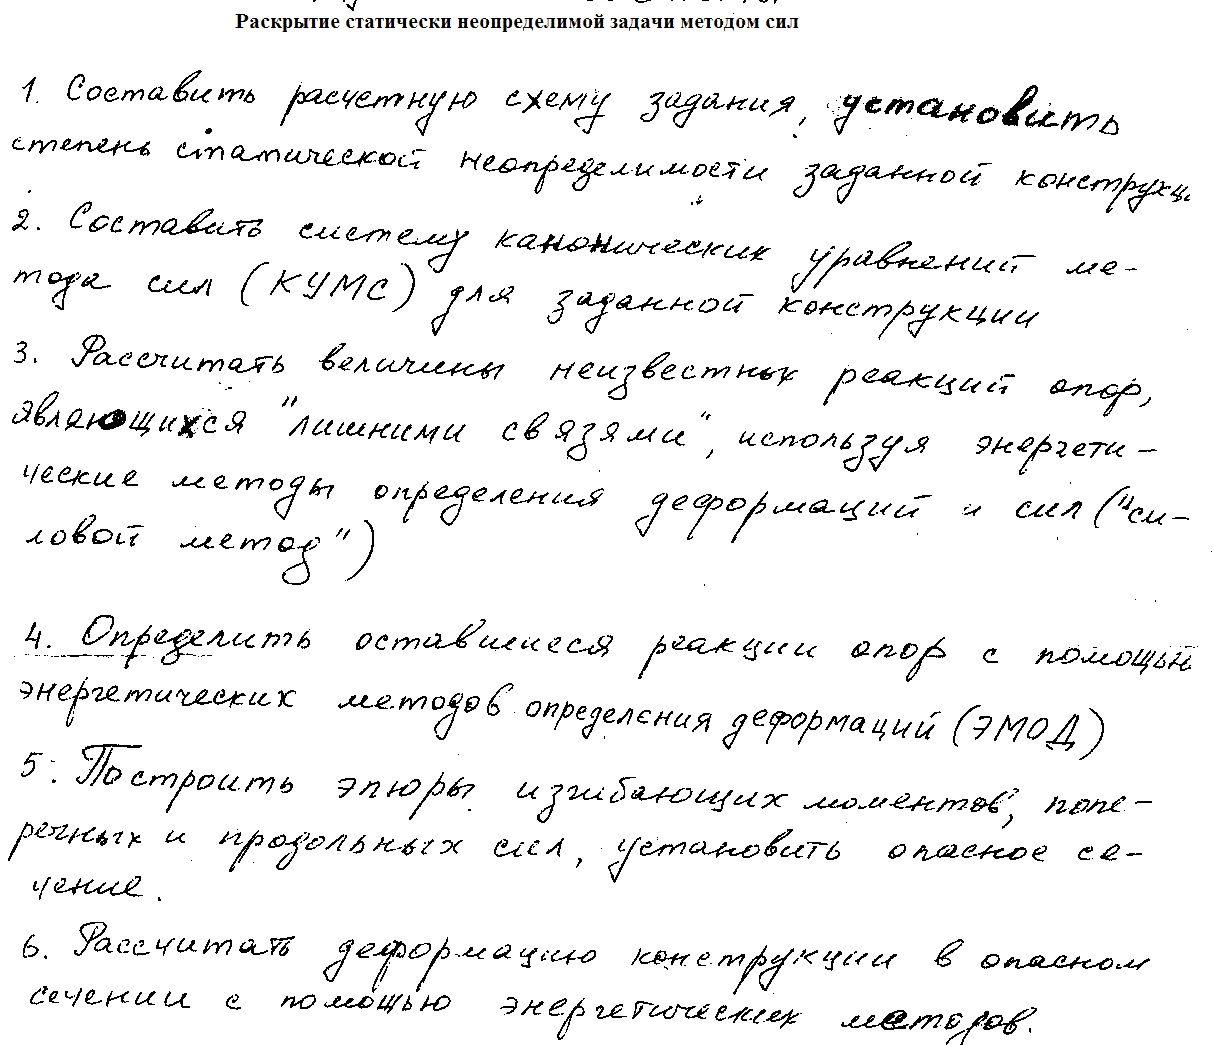 Раскрытие статически неопределимой задачи методом сил
1. Составить расчетную схему задания, установить
степень статической неопределимости заданной конструкц
2. Составить систему канонических уравнений ме-
тода сил (КУМС) для заданной конструкции
3. Рассчитать величины неизвестных реакций опор,
являющихся "лишними связями", используя энергети-
ческие методы определения деформаций и сил ("си-
ловой метод")
4. Определить оставшиеся реакции опор с помощью
энергетических методов определения деформаций (ЭМОД)
5. Построить эпюры изгибающих моментов, попе-
речных и продольных сил, установить опасное се-
чение.
6. Рассчитать деформацию конструкции в опасном
сечении с помощью энергетических методов.